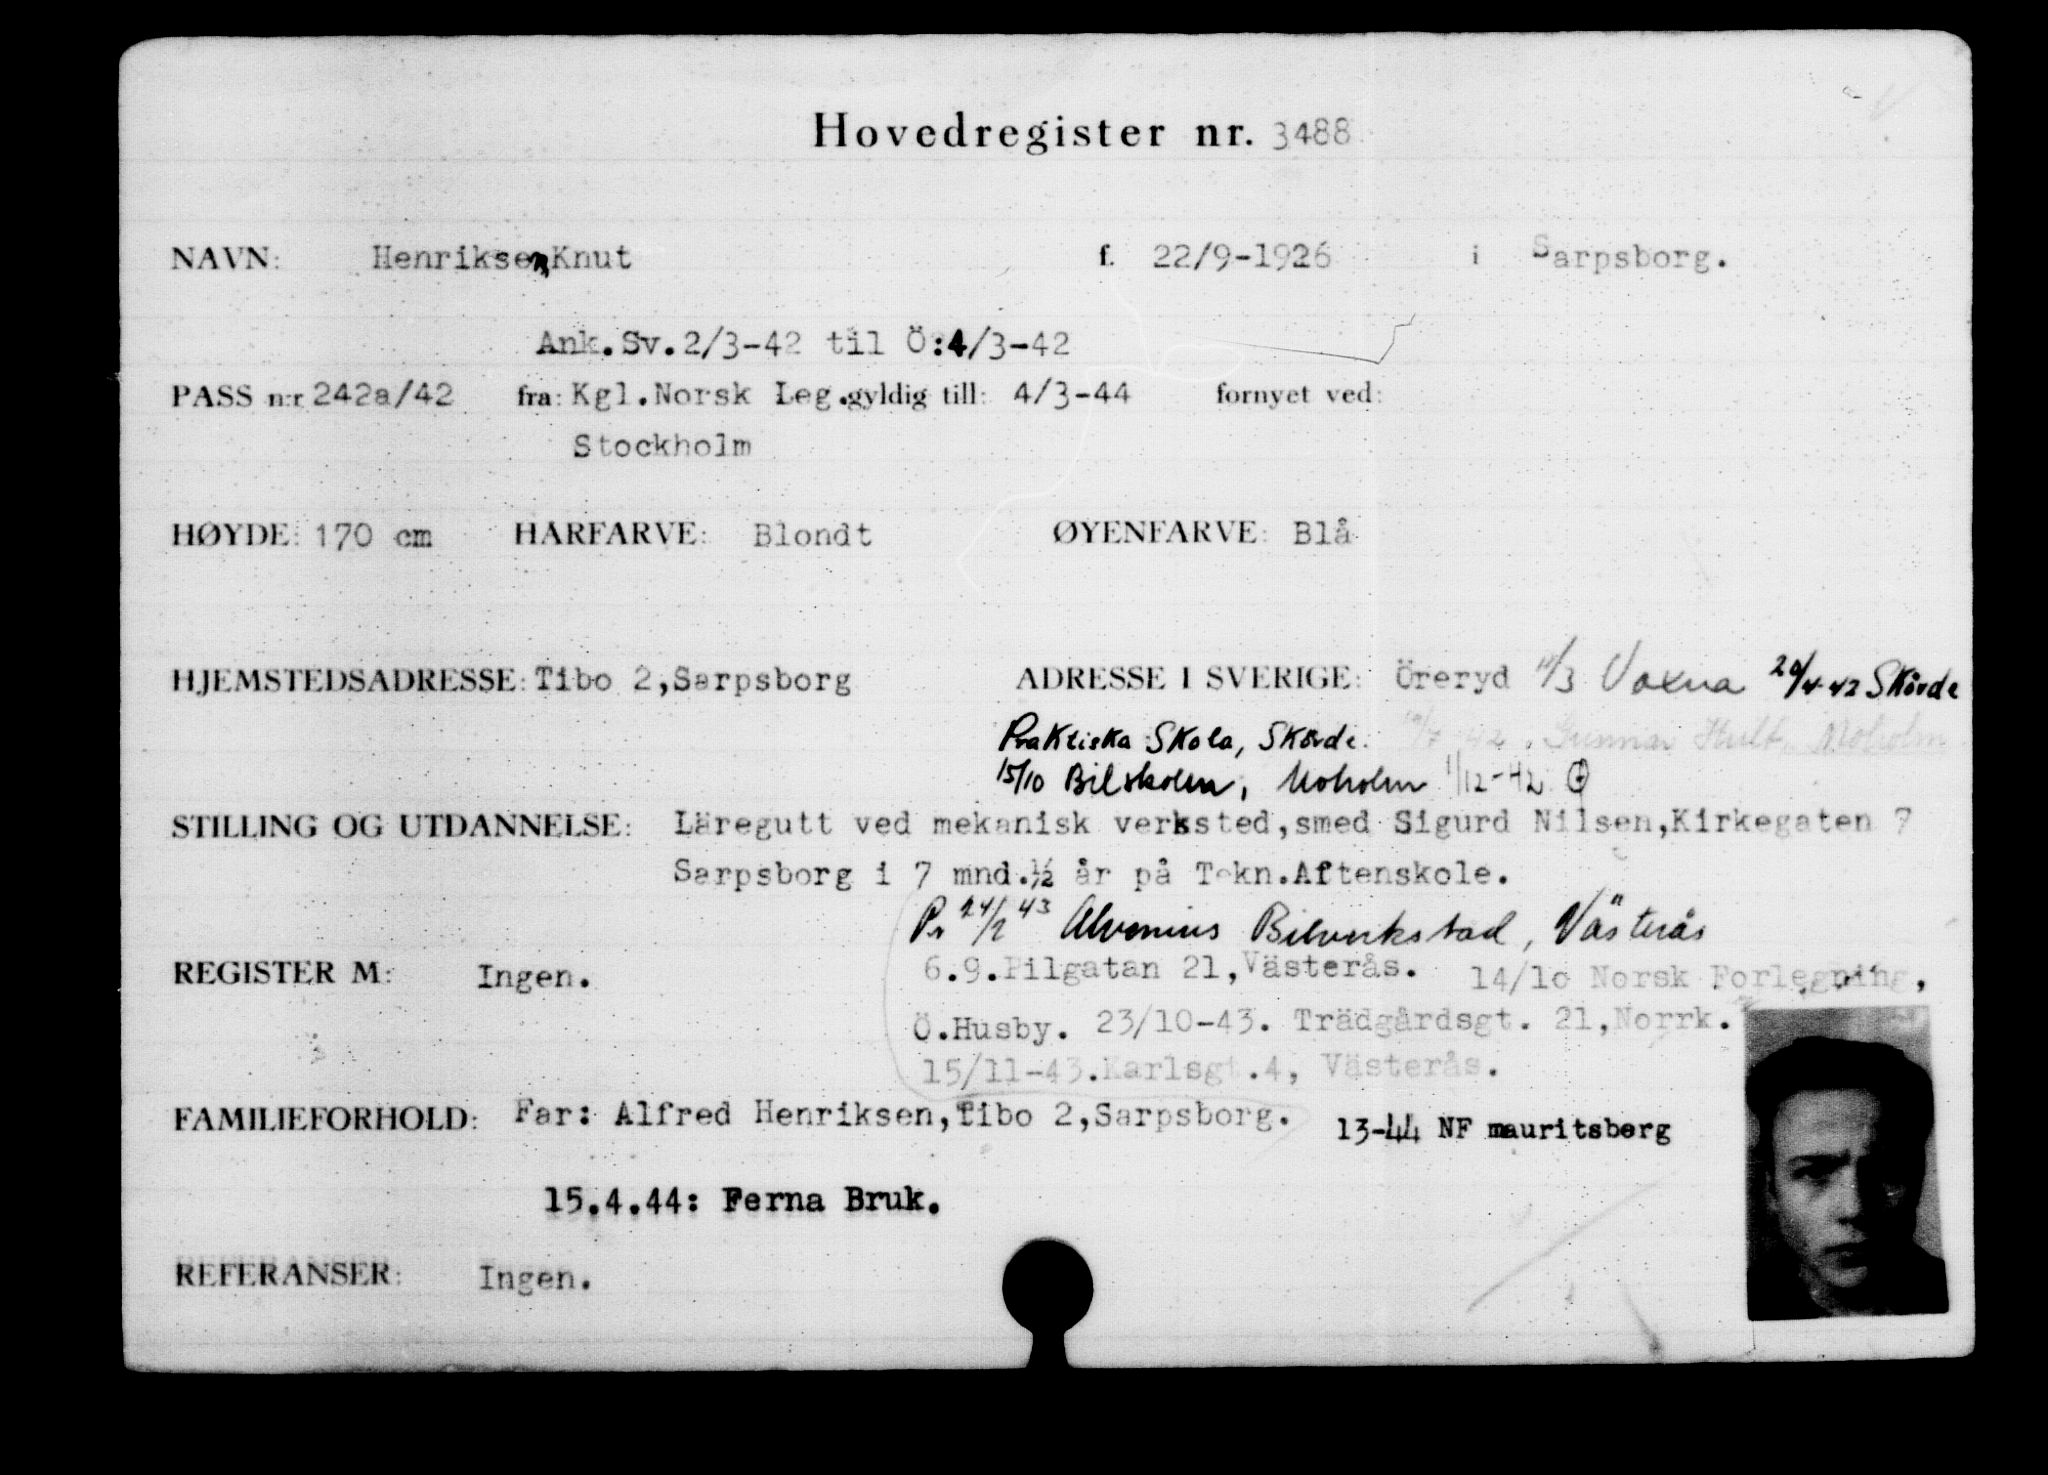 Hovedregister nr. 3488
NAVN: Henriksen, Knut f. 22/9-1926 i Sarpsborg.
Ank.Sv.2/3-42 til Ö:4/3-42
PASS n:r 242a/42 fra: Kgl.Norsk Leg. gyldig till: 4/3-44 fornyet ved:
Stockholm
HØYDE: 170 cm HARFARVE: Blondt ØYENFARVE: Blå
HJEMSTEDSADRESSE: Tibo 2,Sarpsborg ADRESSE I SVERIGE: Öreryd Voxna 20/4-42 Skövde
Praktiska Skola, Skövde. 42. Gunnar Hult, Moholm
15/10 Bilskolen, Moholm 1/12-42
STILLING OG UTDANNELSE: Läregutt ved mekanisk verksted,smed Sigurd Nilsen,Kirkegaten 7
Sarpsborg i 7 mnd.½ år på Tekn.Aftenskole.
Pr 24/2 43 Bilverkstad, Västerås
REGISTER M: Ingen. 6.9.Pilgatan 21,Västerås. 14/10 Norsk Forlegning,
Ö.Husby. 23/10-43. Trädgårdsgt. 21,Norrk.
15/11-43.Karlsgt.4, Västerås.
FAMILIEFORHOLD: Far: Alfred Henriksen,Tibo 2,Sarpsborg. 13-44 NF mauritsberg
15.4.44: Ferna Bruk.
REFERANSER: Ingen.